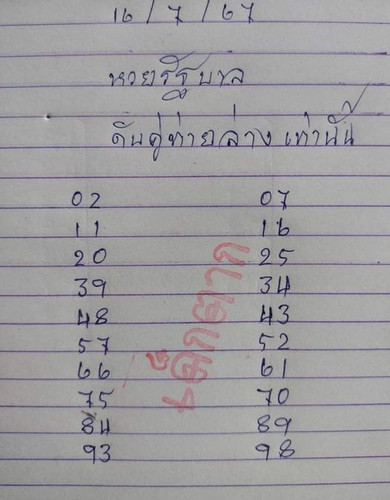 16 / 7 / 67
หวยรัฐบาล
ดับคู่ท้ายล่าง เท่านั้น
02 07
11 16
20 25
39 34
48 43
57 52
66 61
75 70
84 89
93 98
เด็กตาก